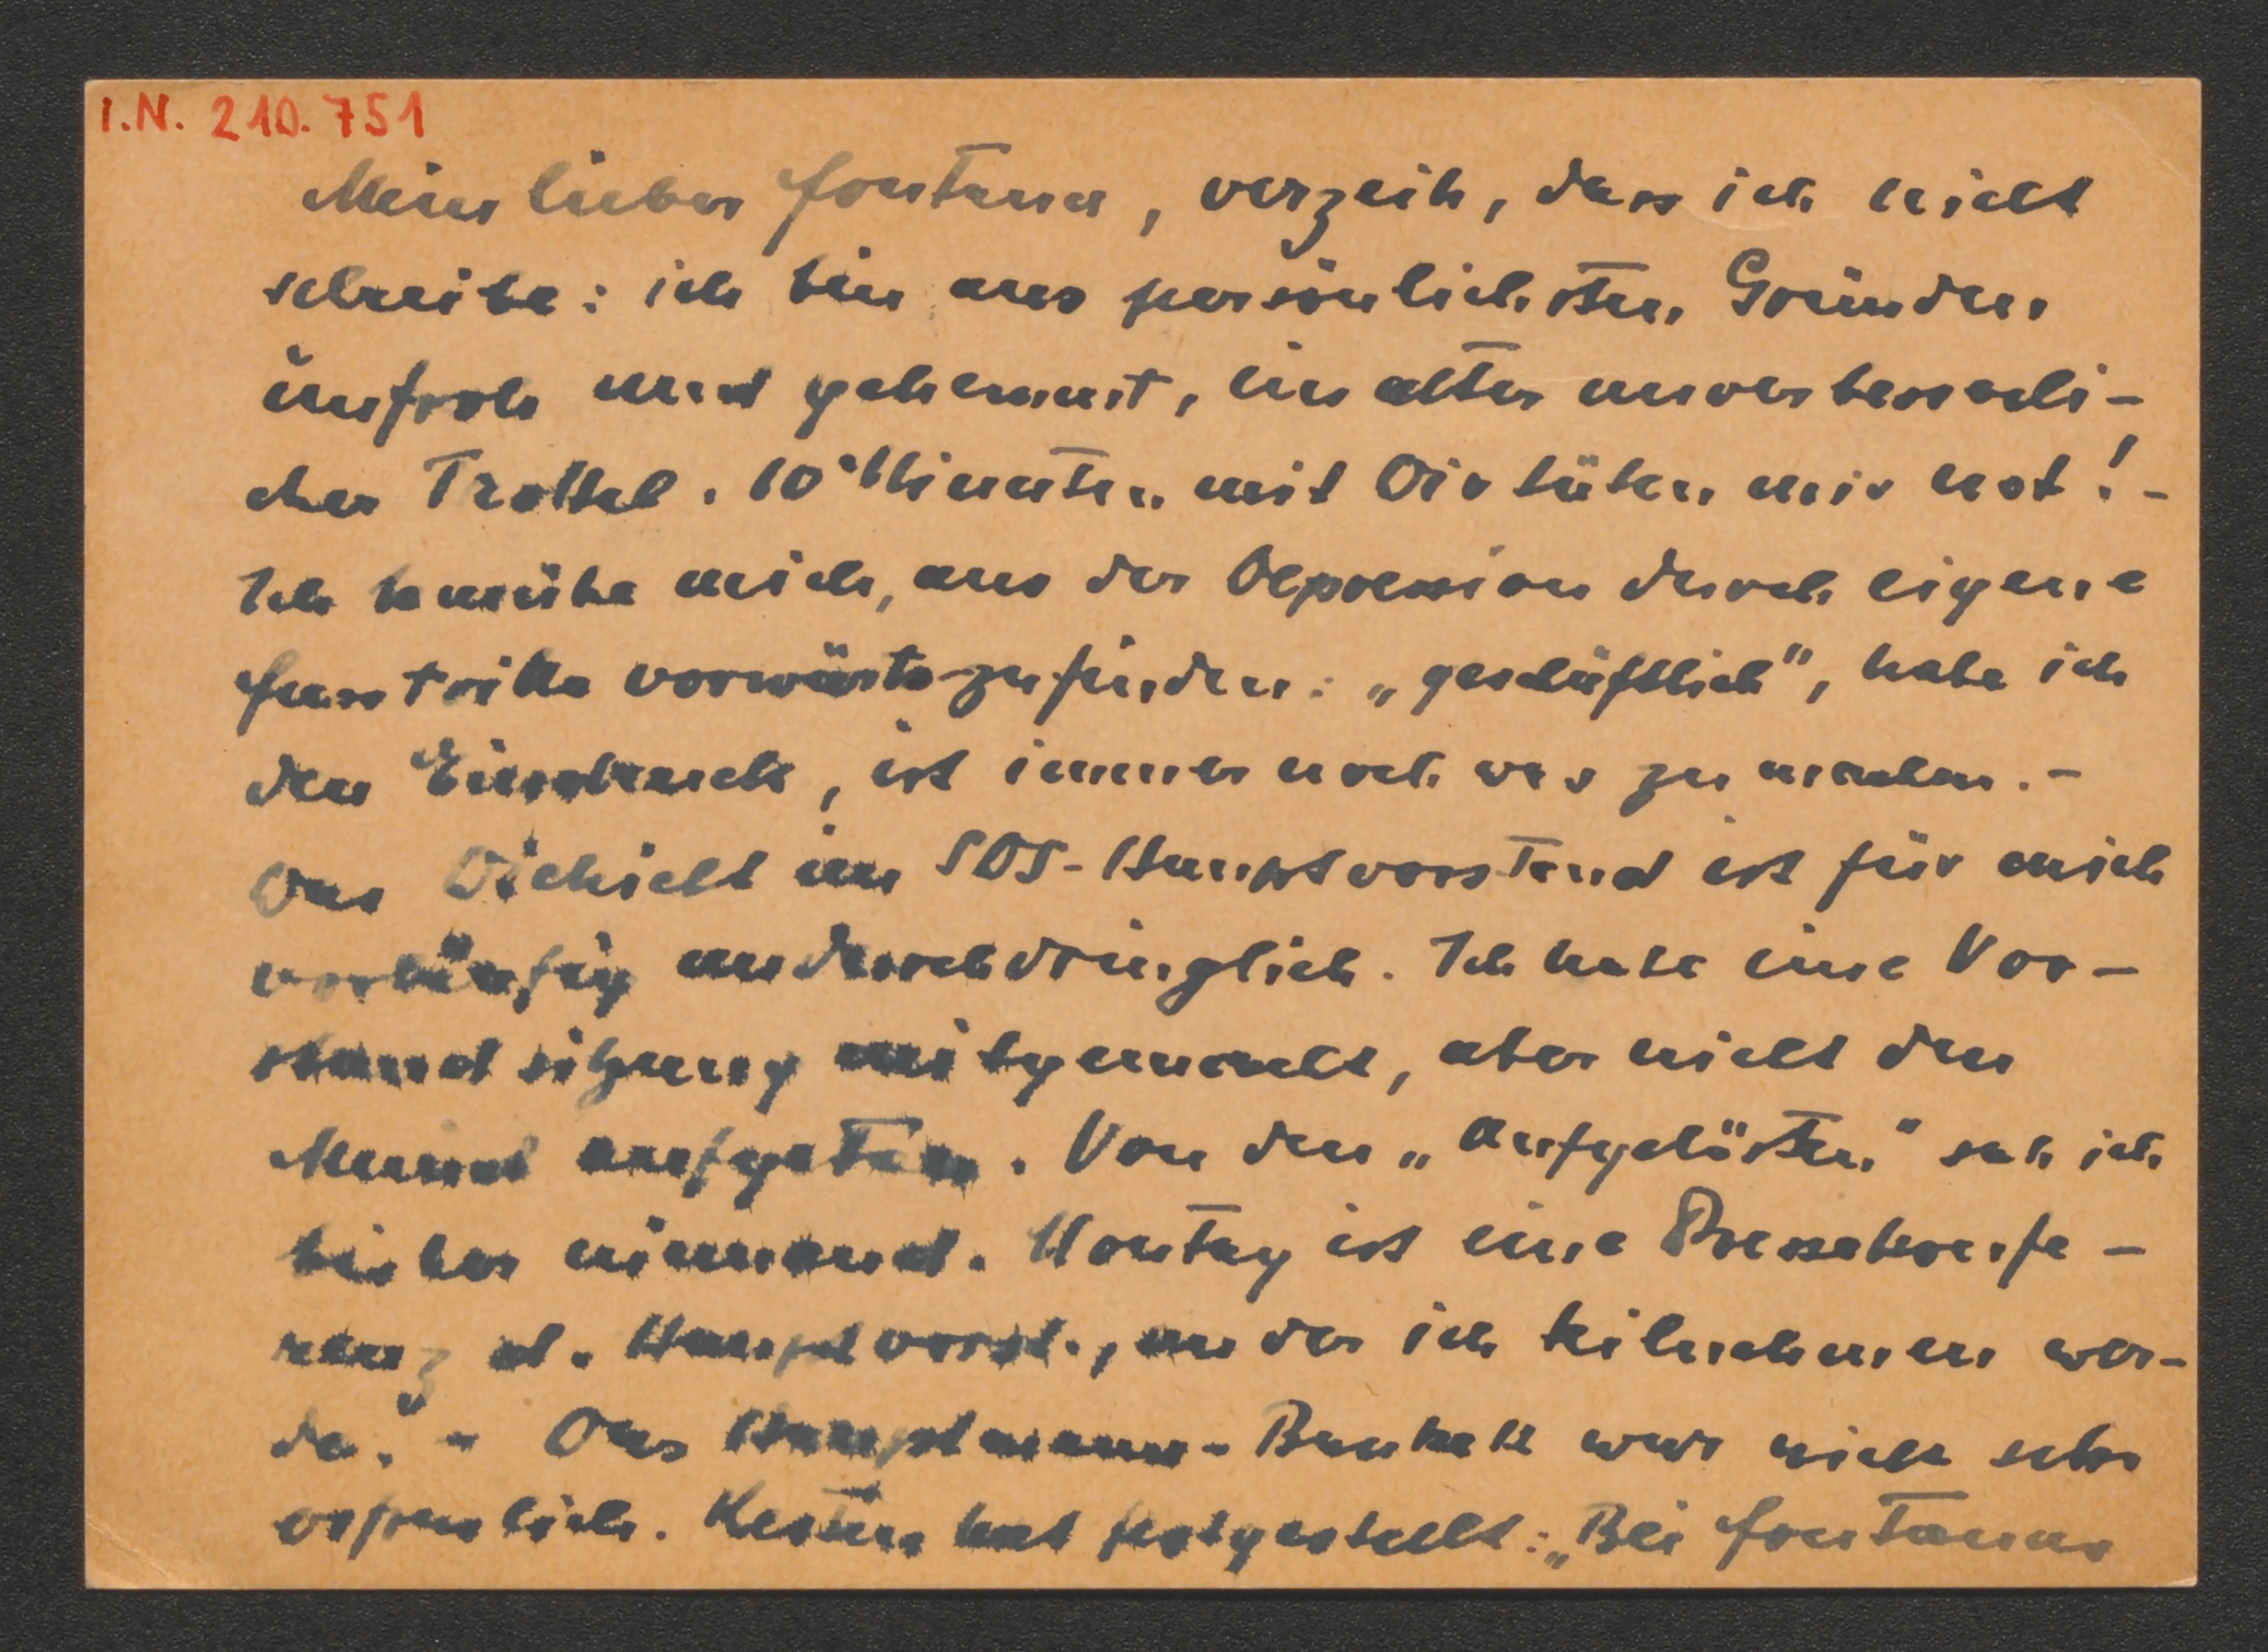 I.N. 210.751
Mein lieber Fontana, verzeih, dass ich nicht
schreibe: ich bin aus persönlichsten Gründen
unfroh und gehemmt, ein alter unverbesserli-
cher Trottel. 10 Minuten mit Dir täten mir not! -
Ich bemühe mich, aus der Depression durch eigene
Fusstritte vorwärtszufinden: „geschäftlich", habe ich
den Eindruck, ist immer noch was zu machen. -
Das Dickicht im SDS-Hauptvorstand ist für mich
vorläufig undurchdringlich. Ich habe eine Vor-
standsitzung mitgemacht, aber nicht den
Mund aufgetan. Von den „Aufgelösten" sah ich
bisher niemand. Montag ist eine Pressekonfe-
renz d. Hauptvorst., an der ich teilnehmen wer-
de. - Das Hauptmann-Bankett war nicht sehr
erfreulich. Kesten hat festgestellt: „Bei Fontanas